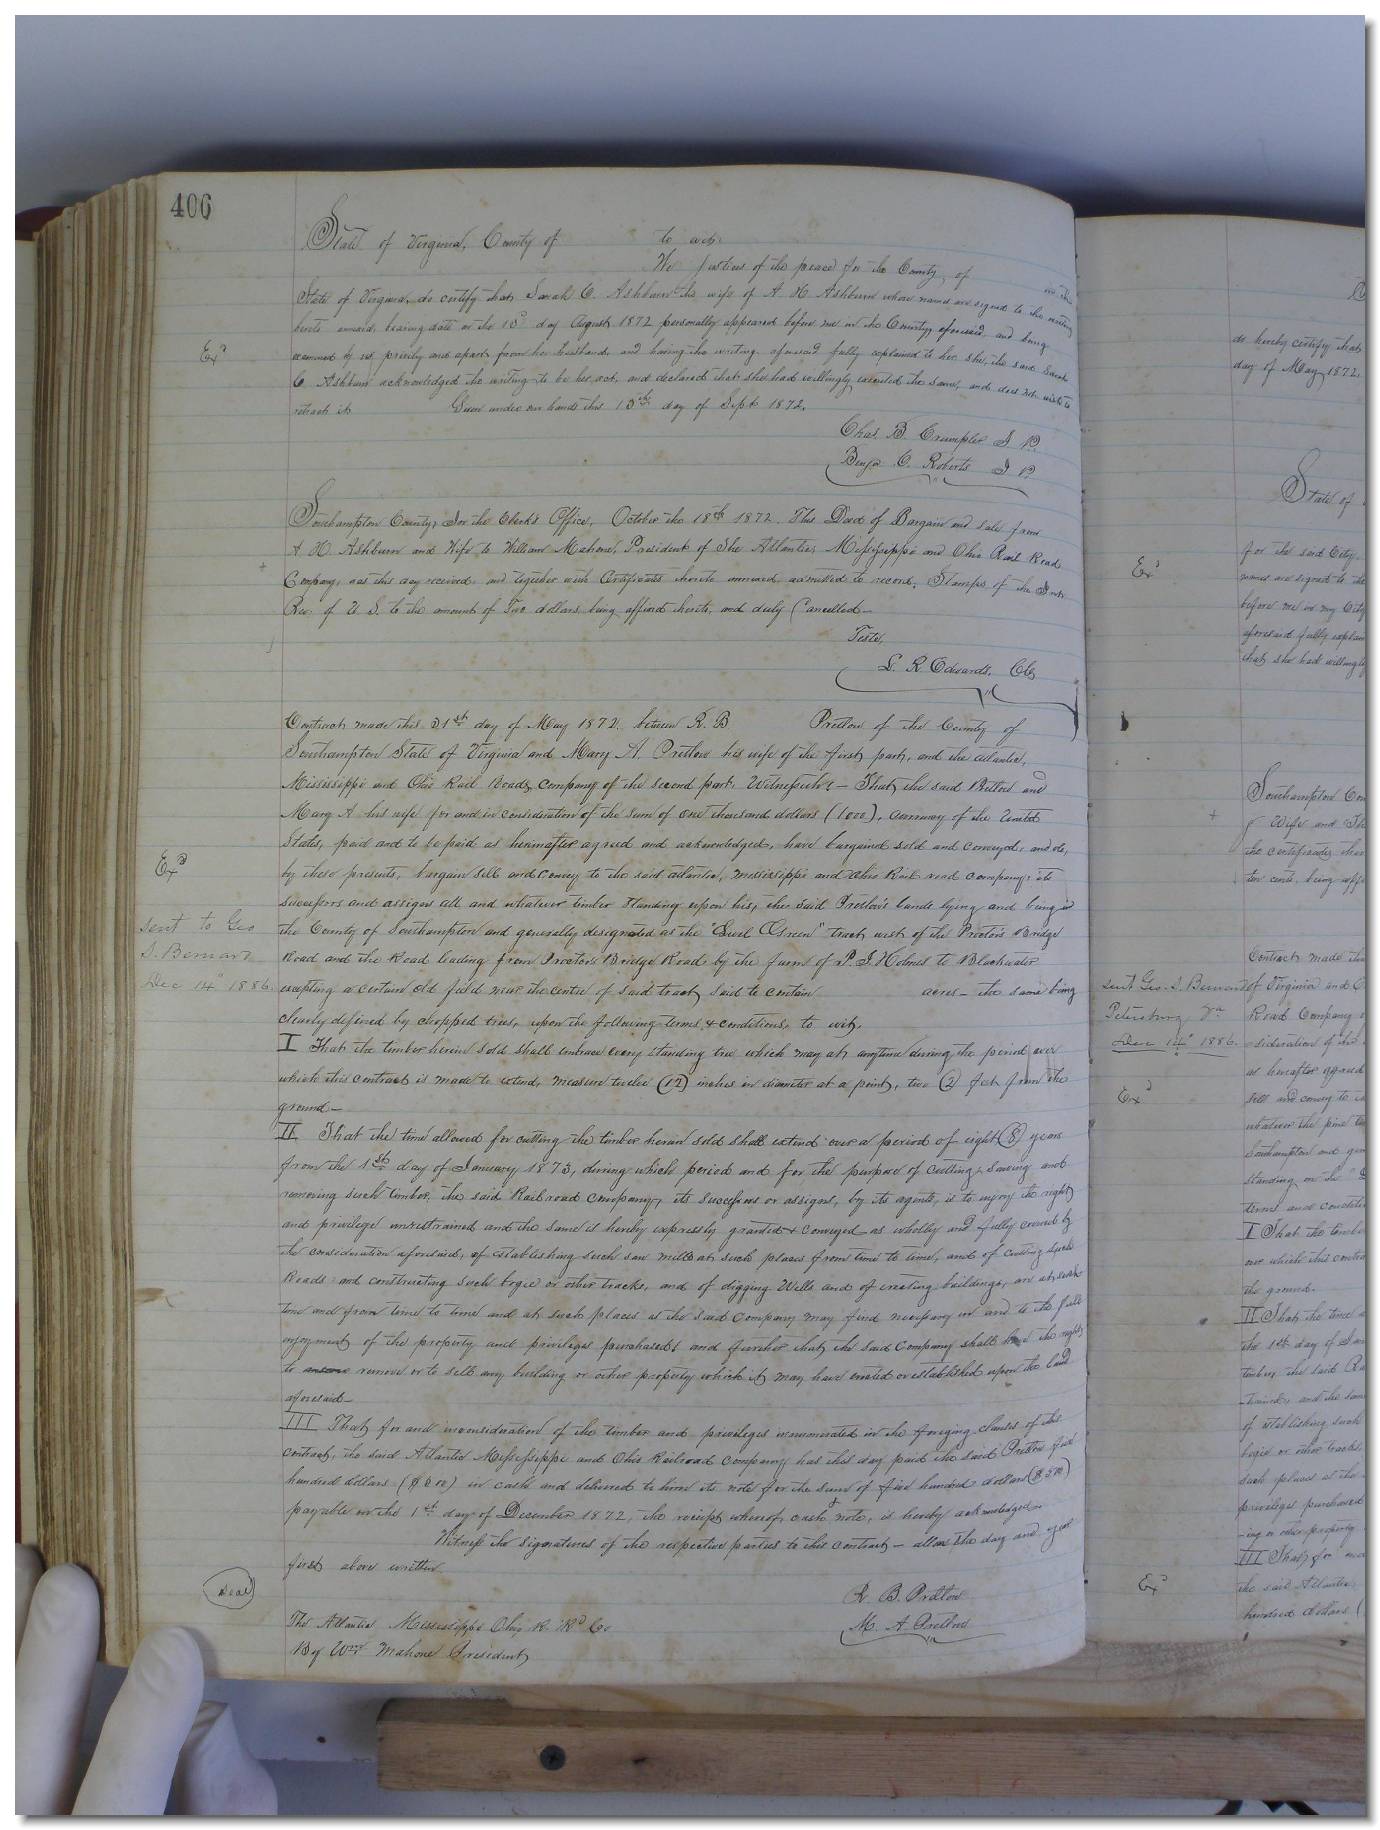 406
State of Virginia, County of to wit:
We Justices of the peace for the County of in the
State of Virginia, do certify that Sarah C. Ashburn the wife of A H Ashburn whose names are signed to the writing
hereto annexed, bearing date on the 10 day August 1872 personally appeared before me in the County aforesaid, and being
examined by us privily and apart from her husband, and having the writing aforesaid fully explained to her she, the said Sarah
C. Ashburn acknowledged the writing to be her act, and declared that she had willingly executed the same, and does not wish to
retract it Given under our hands this 10th day of Sept 1872.
Exd
Chas. B. Crumpler J P.
Benja C. Roberts J P
Southampton County, In the Clerk's Office, October the 18th 1872. This Deed of Bargain and Sale from
A H. Ashburn and Wife to William Mahone, President of The Atlantic, Mississippi and Ohio Rail Road
Company, was this day received and together with Certificate thereto annexed admitted to record. Stamps of the Int.
Rev. of U S. to the amount of Two dollars being affixed hereto, and duly Cancelled—
Teste,
L. R. Edwards, Clk
Contract made this 21st day of May 1872. between R. B Pretlow of the County of
Southampton State of Virginia and Mary A. Pretlow his wife of the first part, and the Atlantic,
Mississippi and Ohio Rail Road Company of the second part. Witnesseth: — That the said Pretlow and
Mary A his wife for and in consideration of the sum of one thousand dollars (1000), currency of the United
States, paid and to be paid as hereinafter agreed and acknowledged, have bargained sold and conveyed, and do,
by these presents, bargain sell and convey to the said Atlantic, Mississippi and Ohio Rail road company, its
successors and assigns all and whatever timber standing upon his, the said Pretlow's lands lying and being in
the County of Southampton and generally designated as the Green" tract west of the Proctor's Bridge
Road and the Road leading from Proctor's Bridge Road by the farm of P. J Holmes to Blackwater
excepting a certain old field near the centre of said tract said to contain acres — the same being
clearly defined by chopped trees, upon the following terms & conditions, to wit,
Exd
Sent to Geo
S. Bernard
Dec 14" 1886.
I That the timber herein sold shall embrace every standing tree which may at anytime during the period over
which this contract is made to extend, measure twelve (12) inches in diameter at a point, two (2) feet from the
ground—
II That the time allowed for cutting the timber herein sold shall extend over a period of eight (8) years
from the 1st day of January 1873, during which period and for the purpose of cutting, sawing and
removing such timber, the said Railroad company, its successors or assigns, by its agents, is to enjoy the right
and privilege unrestrained and the same is hereby expressly granted & conveyed as wholly and fully covered by
the consideration aforesaid, of establishing such saw mills at such places from time to time, and of cutting such
Roads and constructing such bogie or other tracks, and of digging Wells and of erecting buildings, at such
time and from time to time and at such places as the said Company may find necessary in and to the full
enjoyment of the property and privileges purchased; and further that the said Company shall have the right
to remove or to sell any building or other property which it may have erected or established upon the land
aforesaid—
III That for and in consideration of the timber and privileges enumerated in the foregoing clauses of this
contract, the said Atlantic Mississippi and Ohio Railroad company has this day paid the said Pretlow five
hundred dollars ($500) in cash and delivered to him its note for the sum of five hundred dollars ($500)
payable on the 1st day of December 1872, the receipt whereof, cash & note, is hereby acknowledged.
Witness the signatures of the respective parties to this contract — all on the day and year
first above written
R. B. Pretlow
M. A. Pretlow
Seal
The Atlantic Mississippi Ohio R. Rd Co
By Wm Mahone President
do hereby certify that
day of May 1872.
State of
Exd
for the said City
names are signed to the
before me in my City
aforesaid fully explain
that she had willingly
Southampton Con
& Wife and The
the certificate there
ten cents. being affi
Contract made this
Sent Geo. S. Bernard
Petersburg Va
Dec 14" 1886.
of Virginia and
Road Company
sideration of the
as hereafter agreed
Exd
sell and convey to
whatever the pine
Southampton and gen
standing on the
terms and condition
I That the timber
over which this contra
the ground.
II That the time
the 1st day of Jan
timber, the said Ra
trained, and the same
of establishing such
bogie or other tracks,
such places as the
privileges purchased
ing or other property
III That for and
Exd
the said Atlantic
hundred dollars (